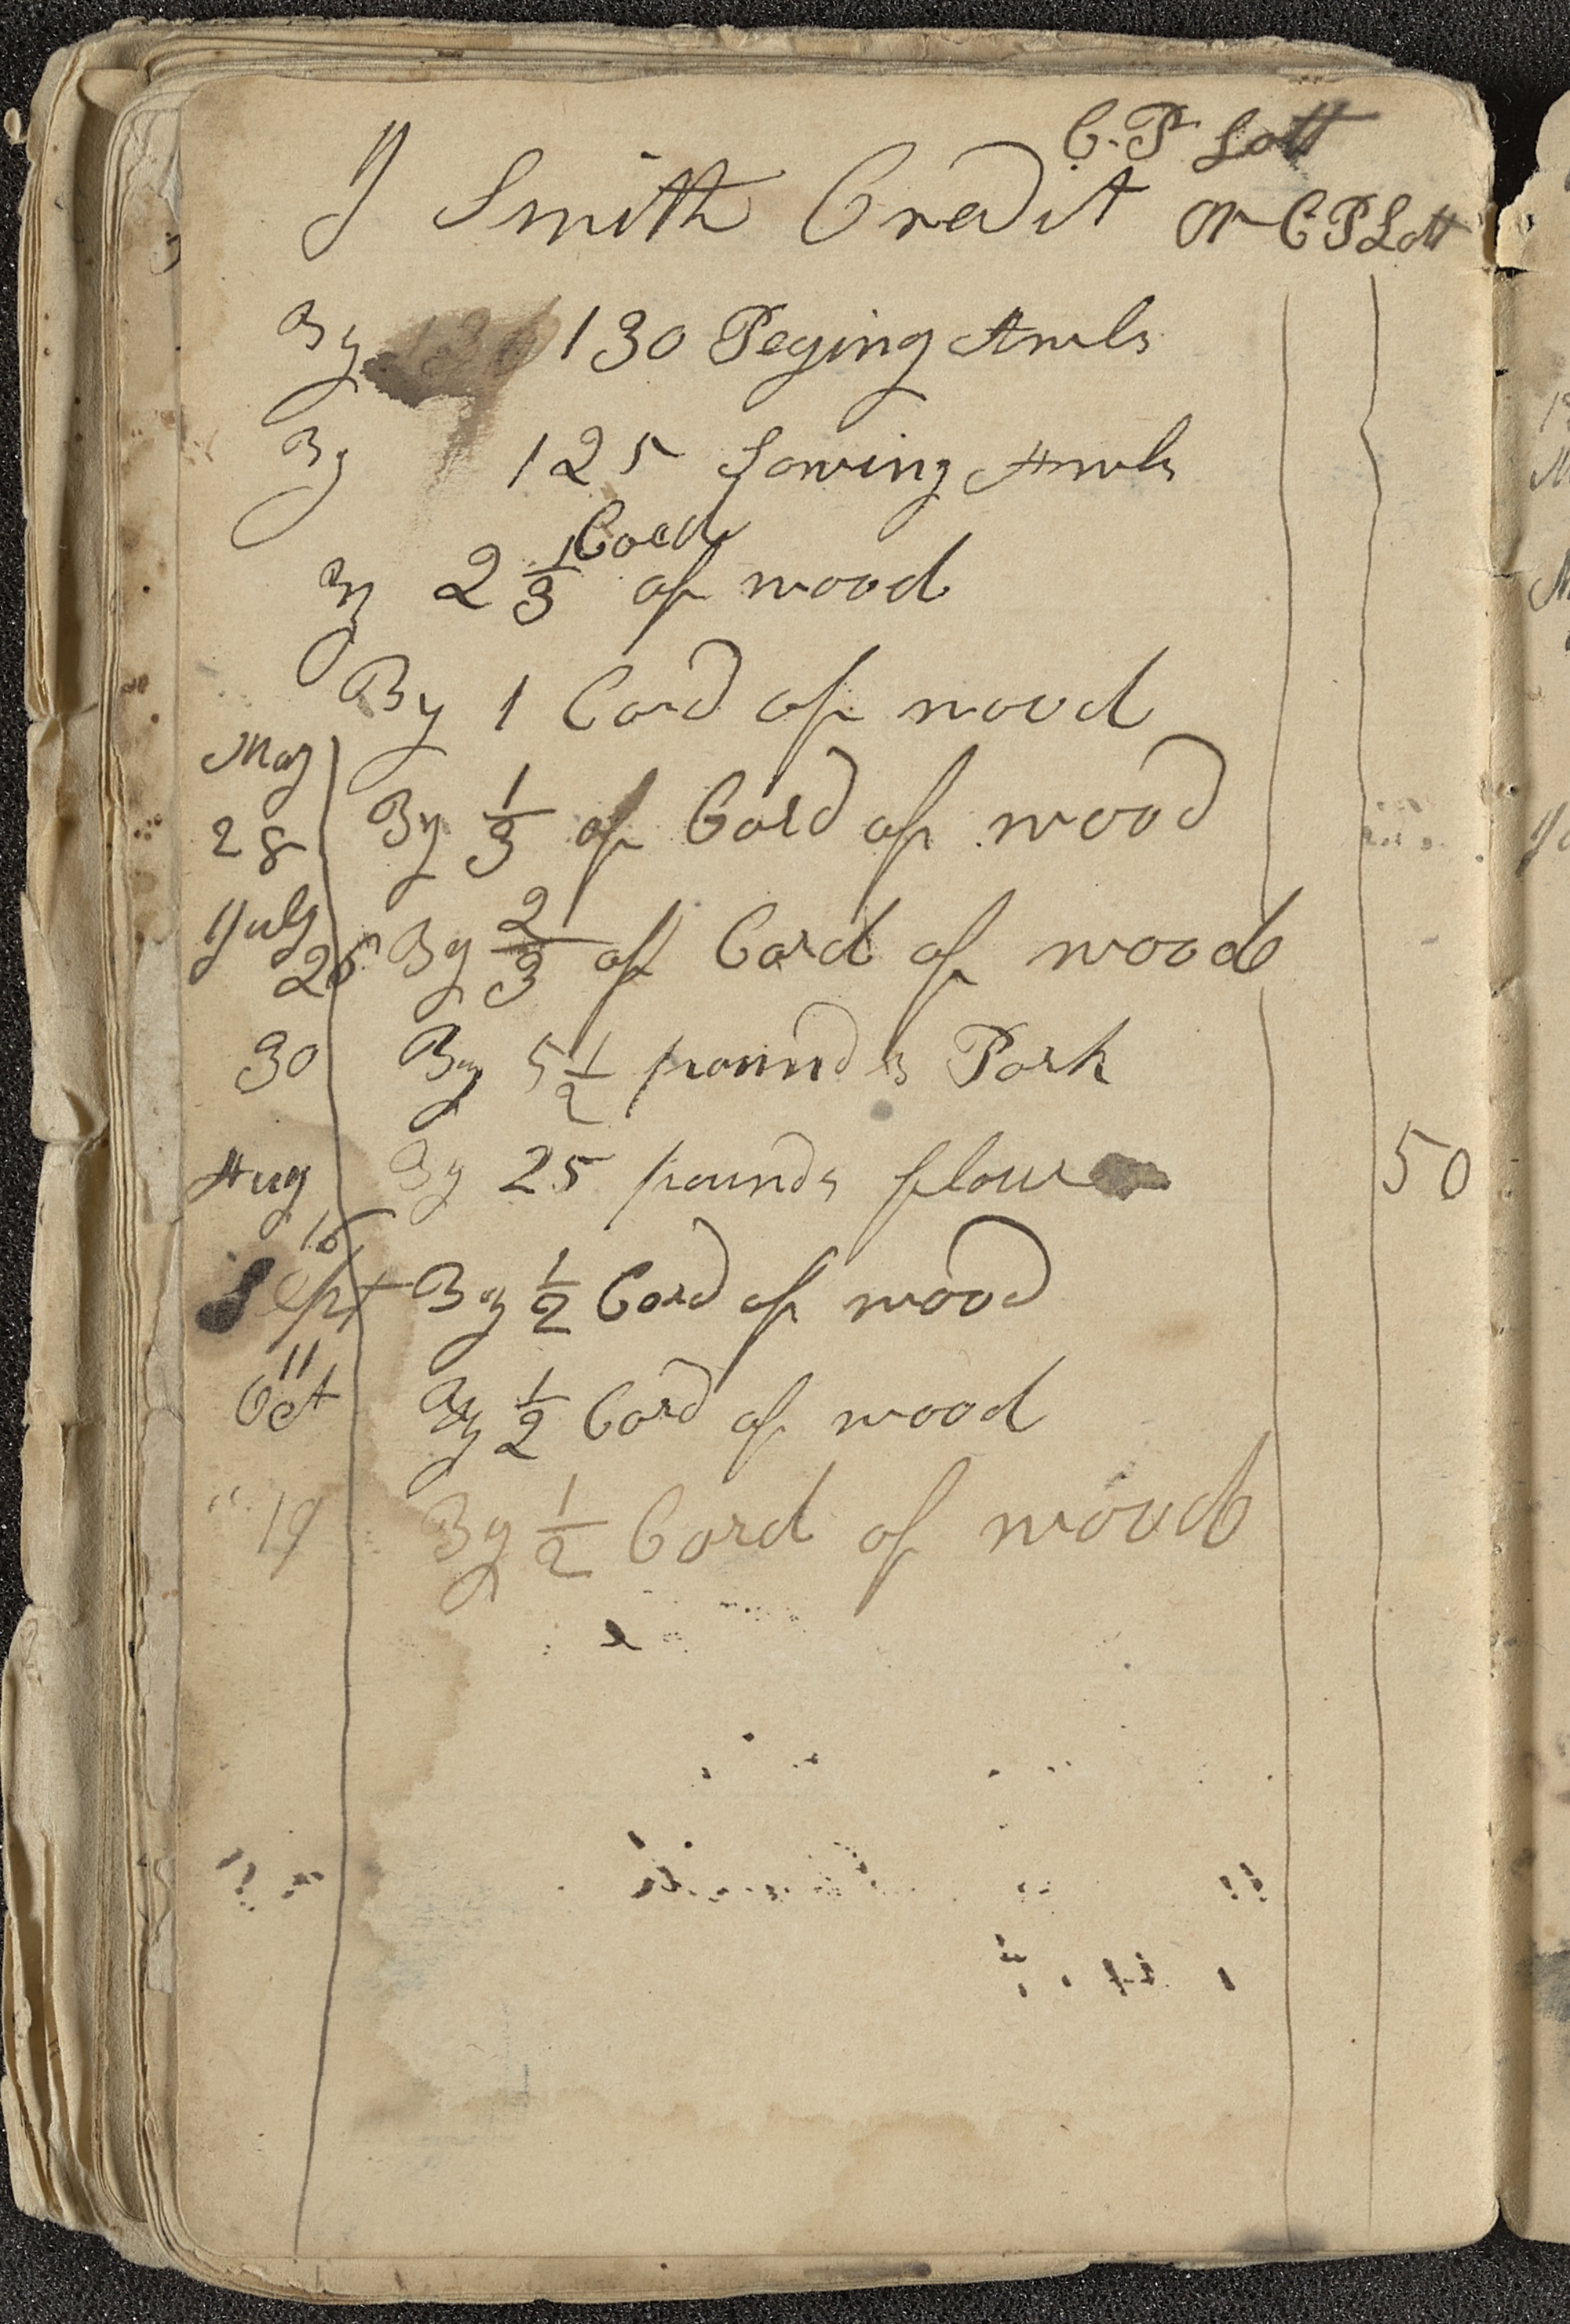 C. P. Lott
J Smith Credit or C P Lott
By 130 Peging Awls
By 125 Sowing Awls
Cord
By 2 1/3 of wood
By 1 Cord of wood
May
28 By 1/3 of Cord of wood
July
25 By 2/3 of Cord of wood
30 By 5 1/2 pounds Pork
Aug By 25 pounds flour 50
16
Sept By 1/2 Cord of wood
11
Oct By 1/2 Cord of wood
" 19 By 1/2 Cord of wood